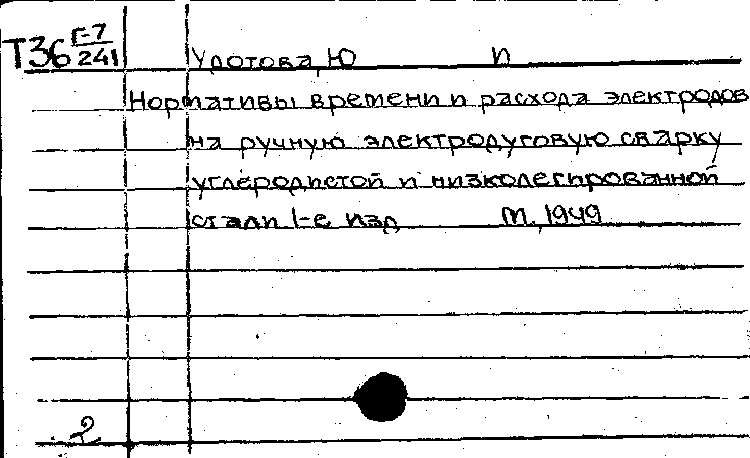 Т36 Г-7/241
Улотова, Ю П
Нормативы времени и расхода электродов
на ручную электродуговую сварку
углеродистой и низколегированной
стали 1-е изд М, 1949
2